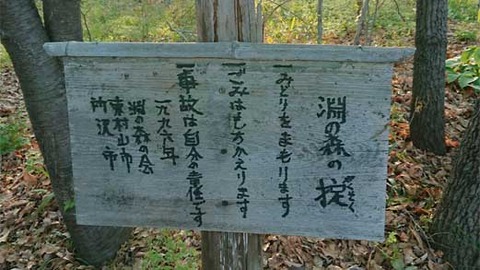 淵の森の掟
一みどりをまもります
一ごみはもちかえります
一事故は自分の責任です
一九九六年
淵の森の会
東村山市
所沢市